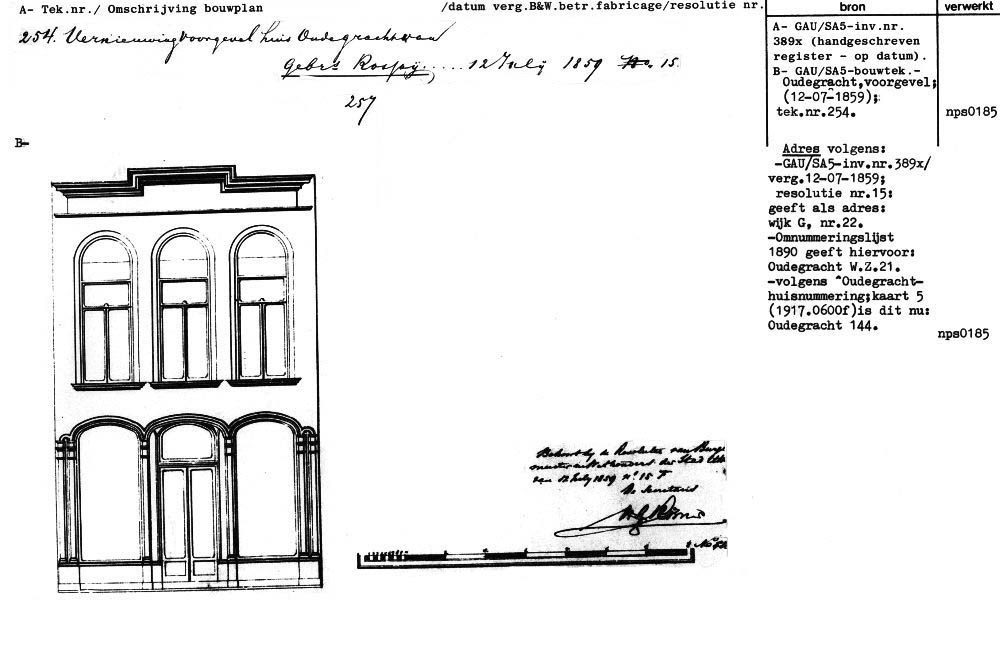 A- Tek.nr./ Omschrijving bouwplan
/datum verg.B&W.betr.fabricage/resolutie nr.
bron
verwerkt
254. Vernieuwing Voorgevel huis Oudegracht van
Gebrs ..... 12 July 1859 No. 15.
257
A- GAU/SA5-inv.nr.
389x (handgeschreven
register - op datum).
B- GAU/SA5-bouwtek.-
Oudegracht,voorgevel;
(12-07-1859);
tek.nr.254.
nps0185
B-
Adres volgens:
-GAU/SA5-inv.nr.389x/
verg.12-07-1859;
resolutie nr.15:
geeft als adres:
wijk G, nr.22.
-Omnummeringslijst
1890 geeft hiervoor:
Oudegracht W.Z.21.
-volgens "Oudegracht-
huisnummering;kaart 5
(1917.0600f)is dit nu:
Oudegracht 144.
nps0185
Behoort bij de Resolutie van Burge
meester en Wethouders der Stad
van 12 July 1859 No 15 F
De Secretaris